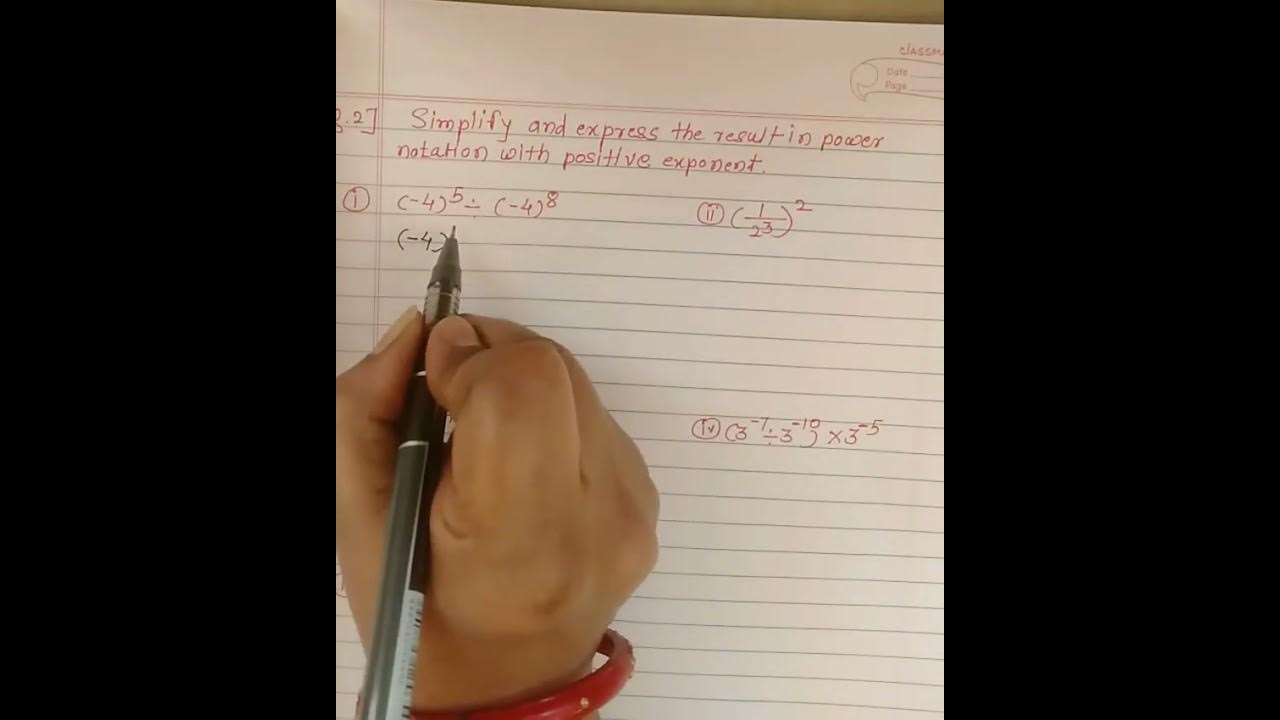 classm
Date
Page
Q.2] Simplify and express the result in power
notation with positive exponent.
(i) (-4)⁵ ÷ (-4)⁸ (ii) (1/2³)²
(-4)
(iv) (3⁻⁷ ÷ 3⁻¹⁰) × 3⁻⁵